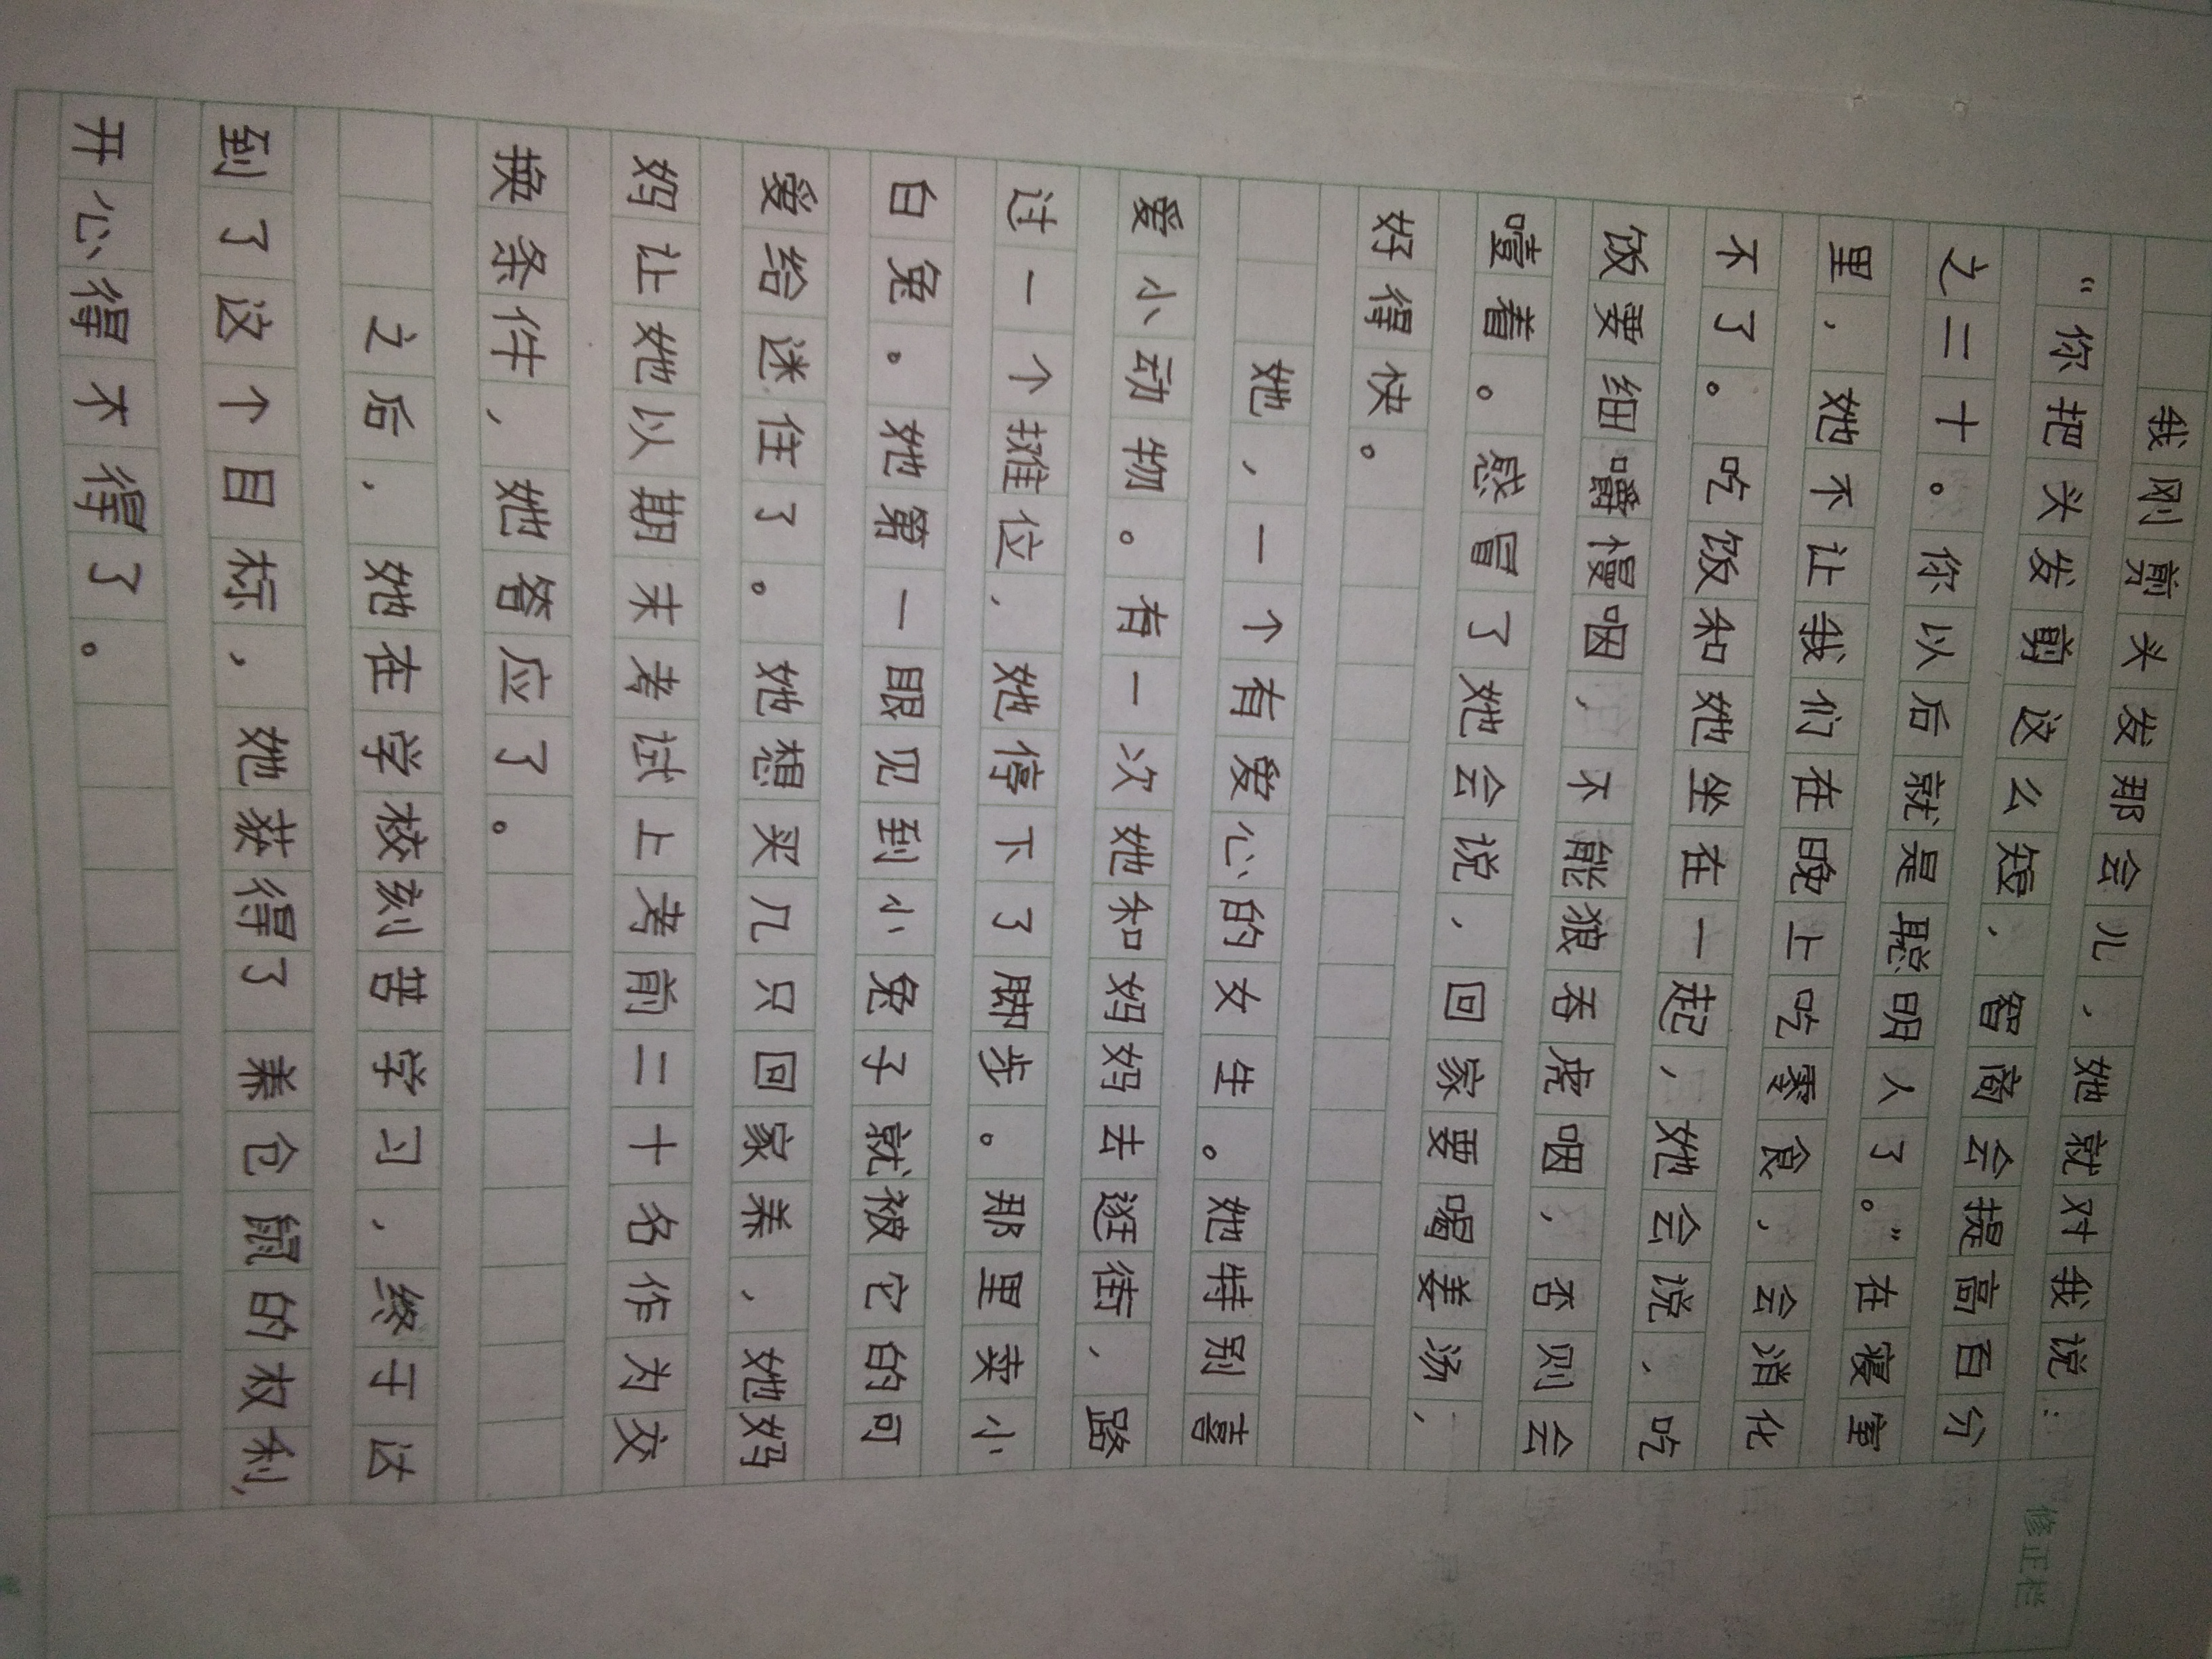 我刚剪头发那会儿，她就对我说：
“你把头发剪这么短，智商会提高百分
之二十。你以后就是聪明人了。”在寝室
里，她不让我们在晚上吃零食，会消化
不了。吃饭和她坐在一起，她会说，吃
饭要细嚼慢咽，不能狼吞虎咽，否则会
噎着。感冒了她会说，回家要喝姜汤，
好得快。
她，一个有爱心的女生。她特别喜
爱小动物。有一次她和妈妈去逛街，路
过一个摊位，她停下了脚步。那里卖小
白兔。她第一眼见到小兔子就被它的可
爱给迷住了。她想买几只回家养，她妈
妈让她以期末考试上考前二十名作为交
换条件，她答应了。
之后，她在学校刻苦学习，终于达
到了这个目标，她获得了养仓鼠的权利，
开心得不得了。
修正栏